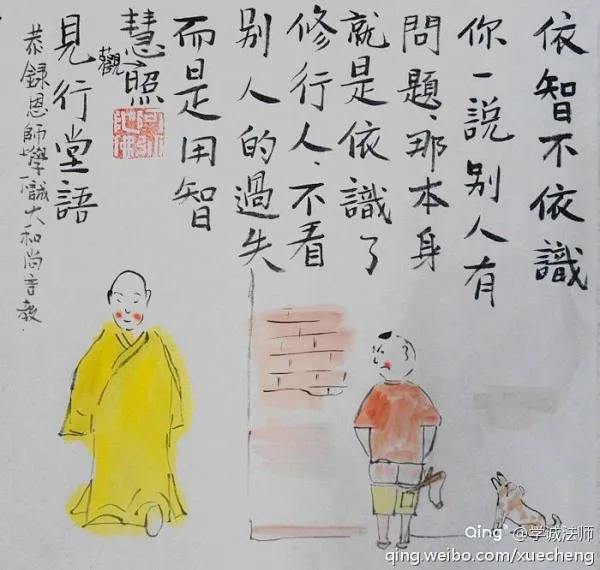 依智不依識
你一説别人有
問題、那本身
就是依識了
修行人、不看
别人的過失
而是用智
慧觀照
見行堂語
恭録恩師學誠大和尚言教.
Qing @学诚法师
qing.weibo.com/xuecheng